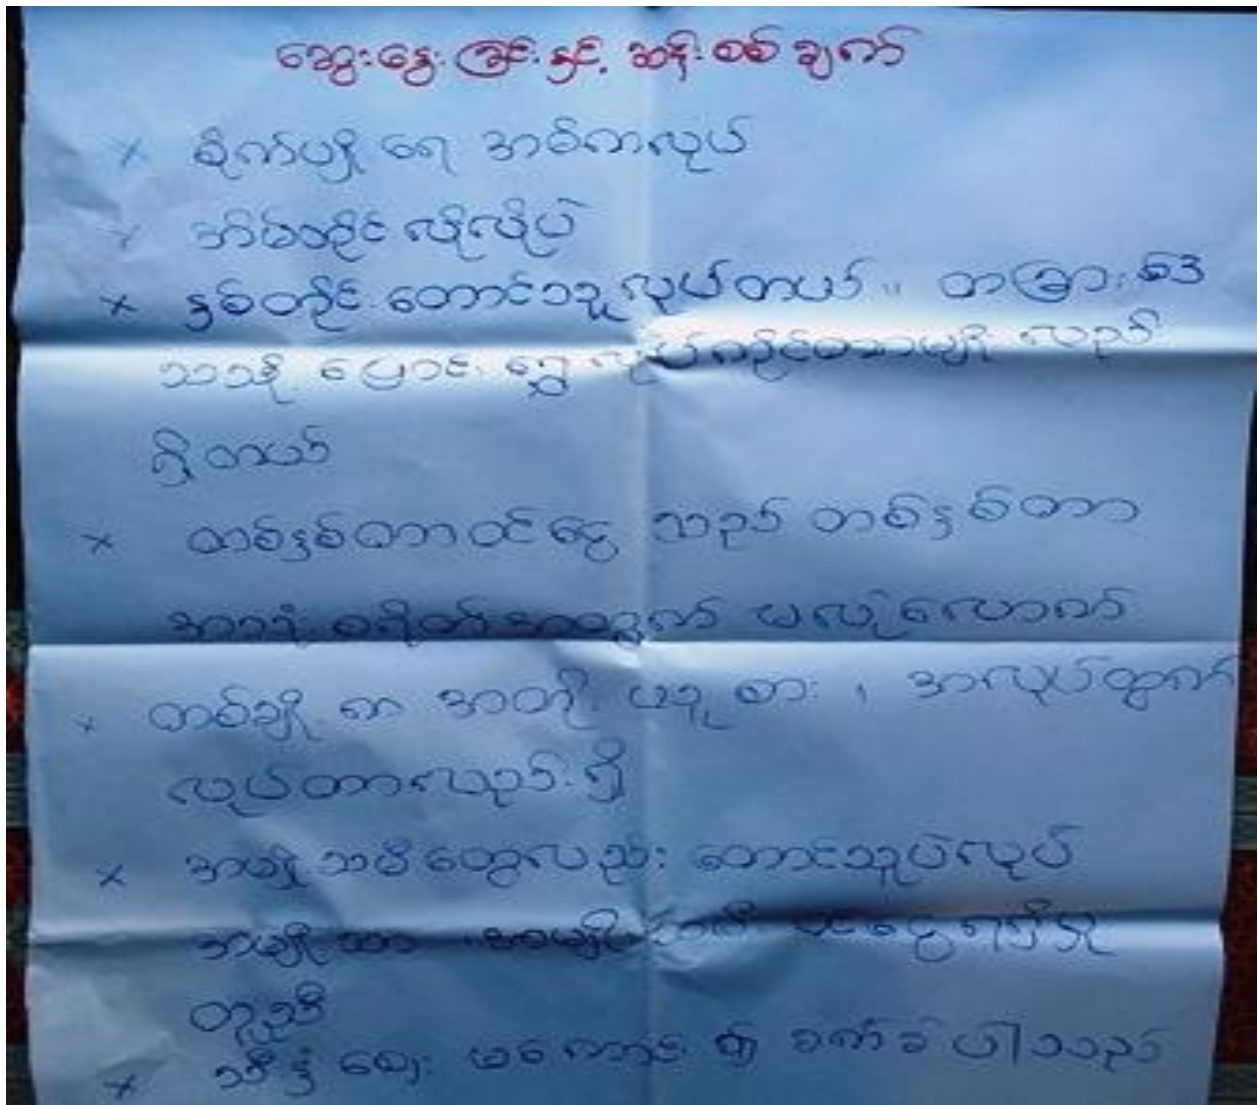 ဆွေးနွေးခြင်းနှင့် ဆန်းစစ်ချက်
× စိုက်ပျိုးရေး အဓိကလုပ်
× အိမ်တိုင်းလိုလိုပဲ
× နှစ်တိုင်း တောင်သူလုပ်တယ်။ တခြားဒေ
သသို့ ပြောင်းရွှေ့လုပ်ကိုင်တာမျိုး လည်း
ရှိတယ်
× တစ်နှစ်တာဝင်ငွေ သည် တစ်နှစ်တာ
အသုံးစရိတ်အတွက် မလုံလောက်
× တစ်ချို့က အတိုးပေးယူစား ၊ အလုပ်ထွက်
လုပ်တာလည်းရှိ
× အမျိုးသမီးတွေလည်း တောင်သူပဲလုပ်
အမျိုးသား ၊ အမျိုးသမီး ဝင်ငွေရရှိမှု
တူညီ
× သီးနှံဈေး မကောင်း၍ ခက်ခဲပါသည်